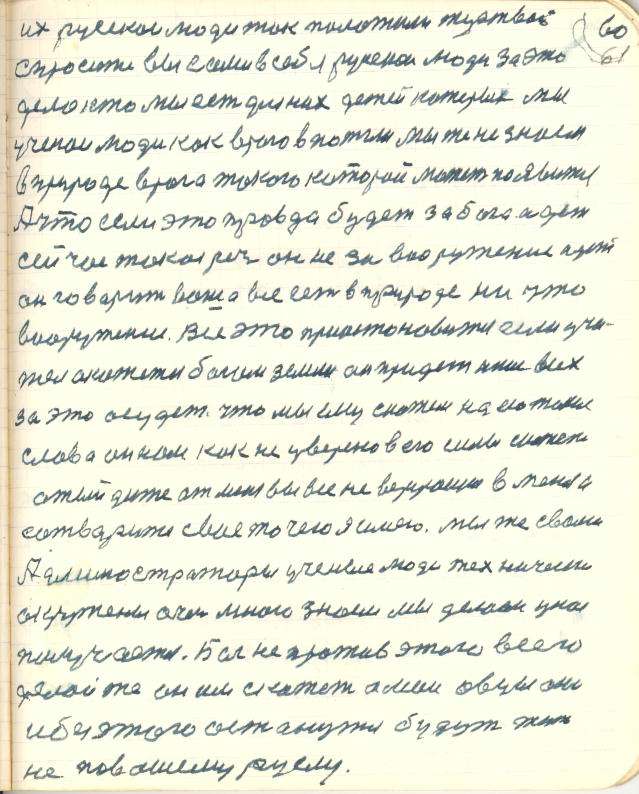 их русской люди так положили жертвой 60
спросите вы сами в себя русской люди за это 61
дело кто мы есть для них детей которых мы
ученые люди как врагов мы же не знаем
в природе врага такого которой может появится
А что если это правда будет за бога идет
сейчас такая речь он не за вооружение пусть
он говорит ваша все есть в природе ни что
вооружение. Всё это приостановится если учи-
тел окажется богом земли он придет нас всех
за это осудет. что мы ему скажем на его такие
слова он нам как не уверенов его силы скажет
отый диже от меня вы все не верующие в меня и
сотварити свое то чего я имею. мы же свои
Админостраторы ученые люди техничеси
окружени очи много знаем мы делаем у нас
получается. Бог не против этого всего
делай те он им скажет а мои овцы они
и без этого останутся будут жит
не по вашему руслу.